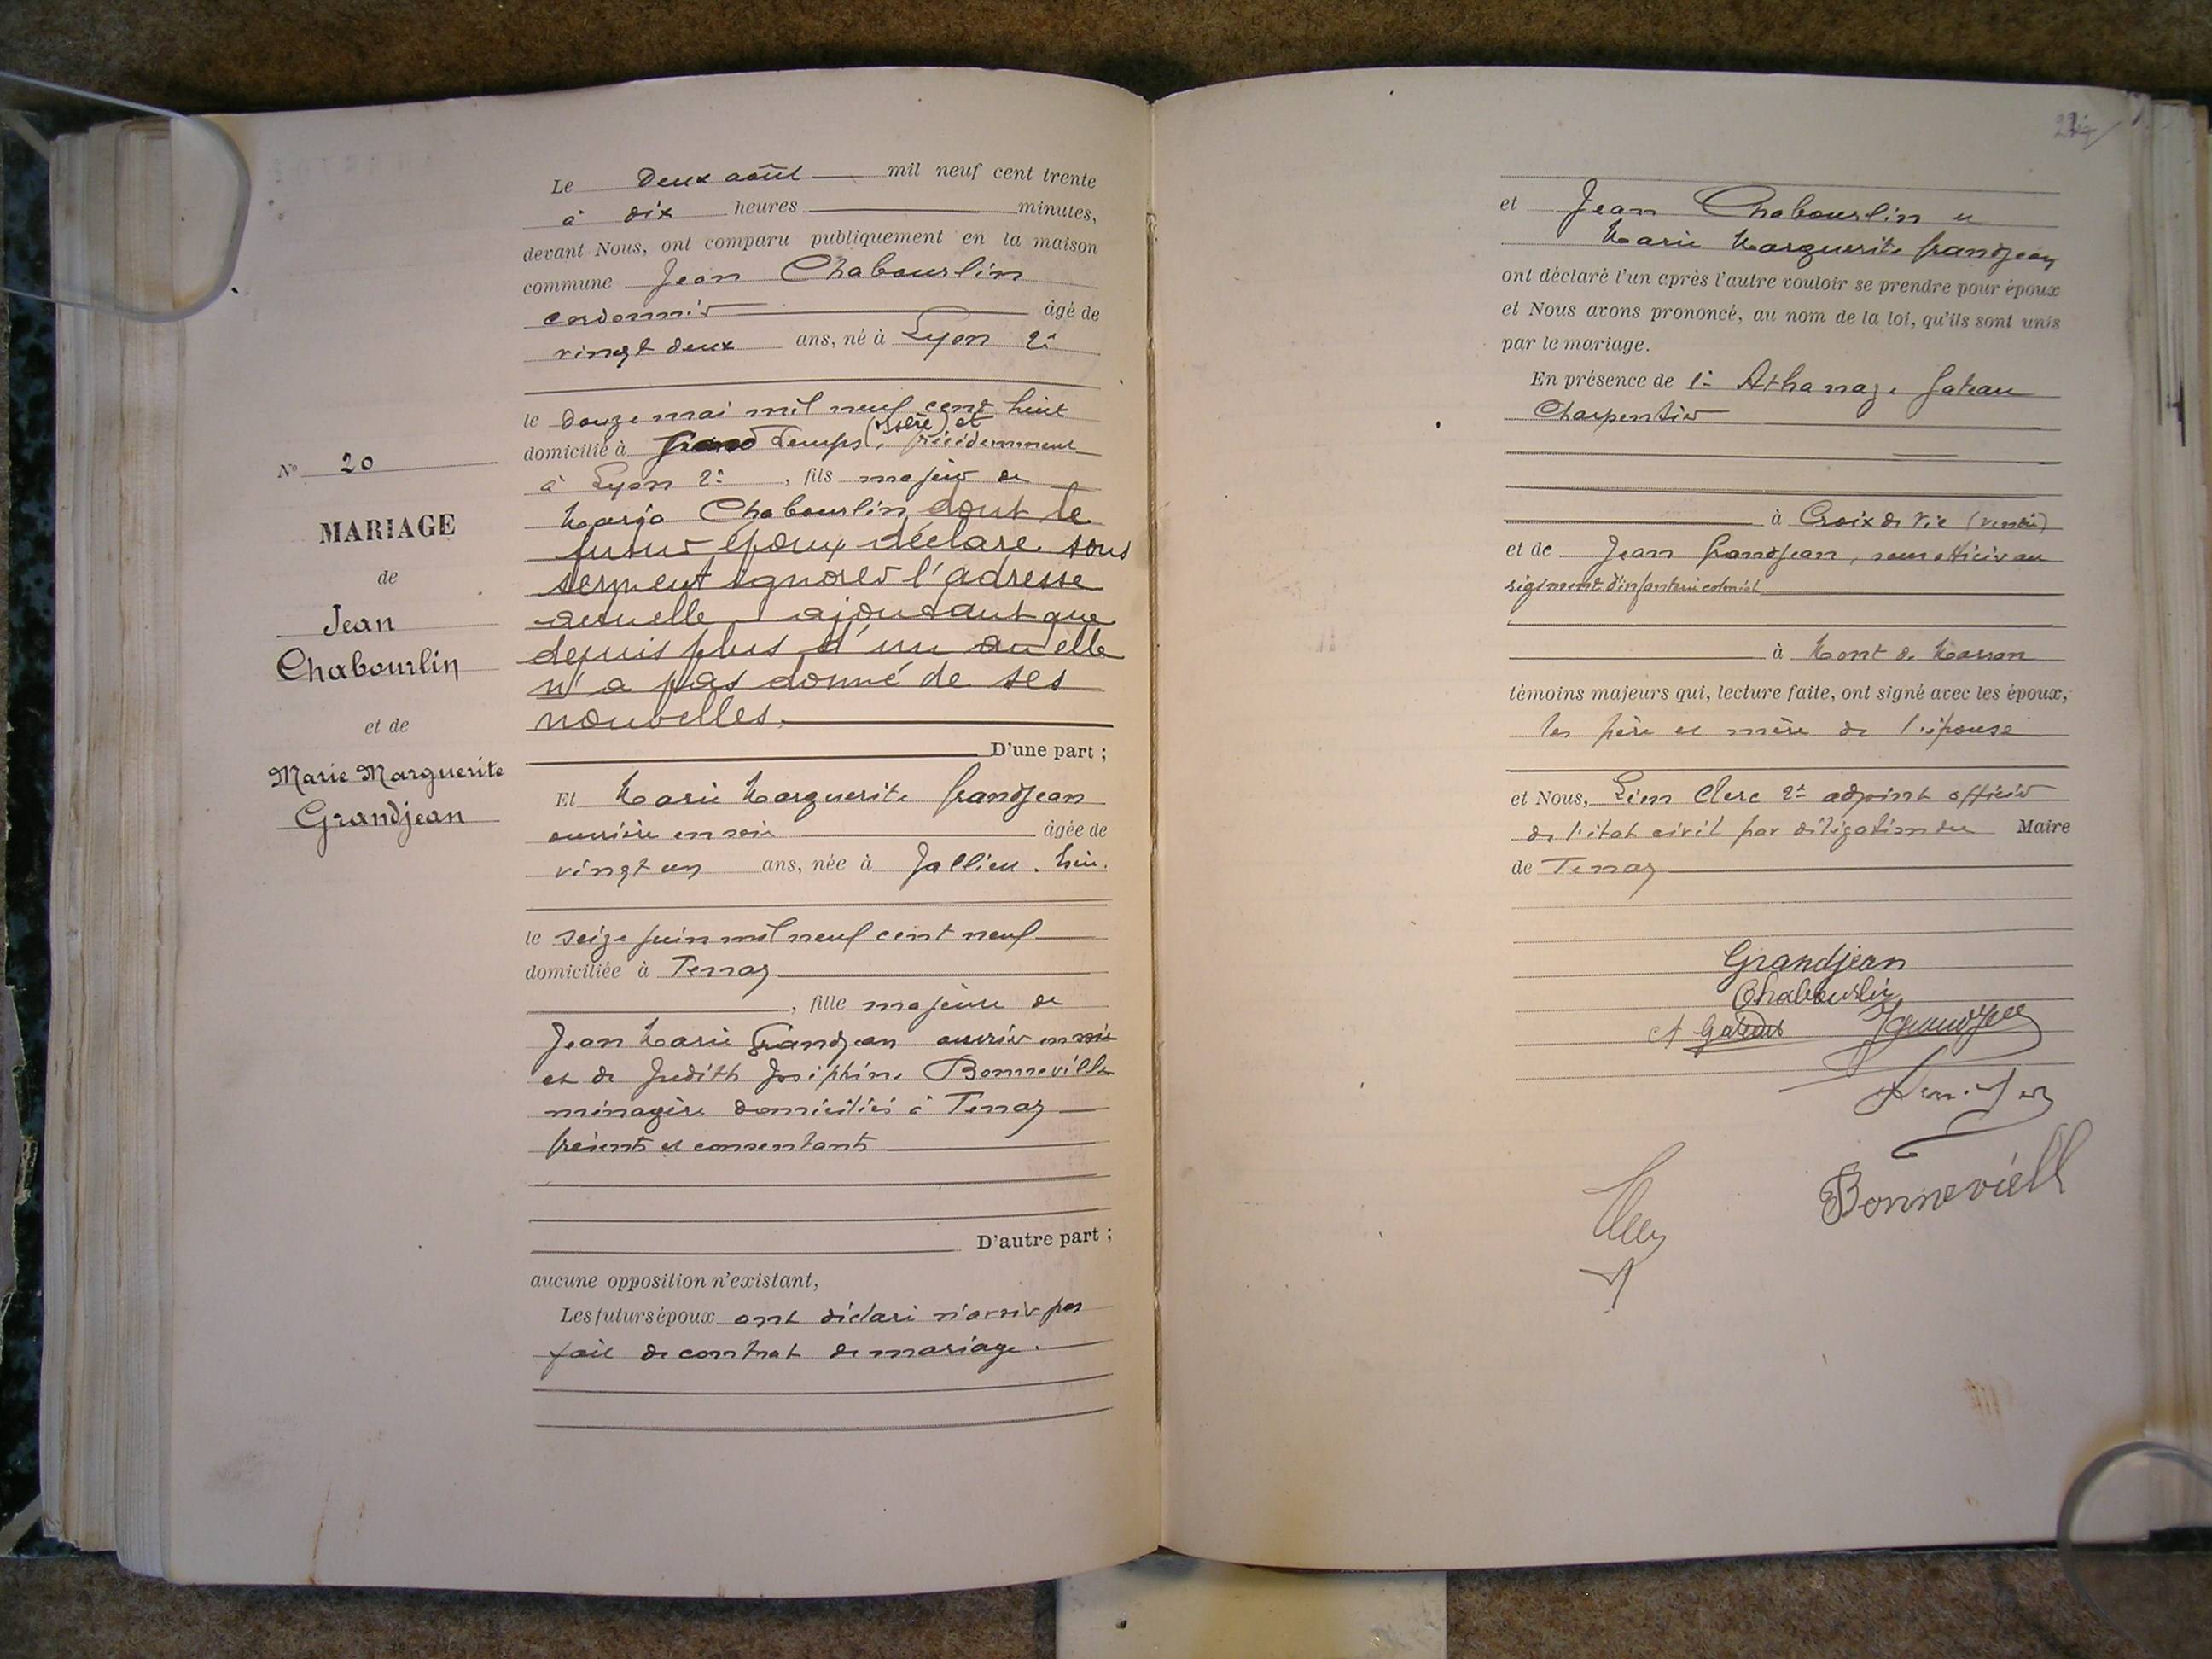 N° 20
MARIAGE
de
Jean
Chabourlin
et de
Marie Marguerite
Grandjean
Le deux août mil neuf cent trente
à dix heures minutes,
devant Nous, ont comparu publiquement en la maison
commune Jean Chabourlin
cordonnier âgé de
vingt deux ans, né à Lyon 2e
le douze mai mil neuf cent huit
domicilié à Grand Lemps (Isère) et précédemment
à Lyon 2e, fils majeur de
Marja Chabourlin dont le
futur époux déclare sous
serment ignorer l'adresse
actuelle ajoutant que
depuis plus d'un an elle
n'a pas donné de ses
nouvelles.
D'une part ;
Et Marie Marguerite Grandjean
ouvrière en soie âgée de
vingt un ans, née à Jallieu. Isère.
le seize juin mil neuf cent neuf
domiciliée à Tenay
, fille majeure de
Jean Marie Grandjean ouvrier en soie
et de Judith Joséphine Bonneville
ménagère domiciliés à Tenay
présents et consentants
D'autre part ;
aucune opposition n'existant,
Les futurs époux ont déclaré n'avoir pas
fait de contrat de mariage.
et Jean Chabourlin et
Marie Marguerite Grandjean
ont déclaré l'un après l'autre vouloir se prendre pour époux
et Nous avons prononcé, au nom de la loi, qu'ils sont unis
par le mariage.
En présence de 1° Athanaze Gateau
Charpentier
à Croix de Vie (Vendée)
et de Jean Grandjean, sous officier au
régiment d'infanterie colonial
à Mont de Marsan
témoins majeurs qui, lecture faite, ont signé avec les époux,
les père et mère de l'épouse
et Nous, Léon Clerc 2e adjoint officier
de l'état civil par délégation du Maire
de Tenay
Grandjean
Chabourlin
A Gateau JGrandjean
Bonnevill